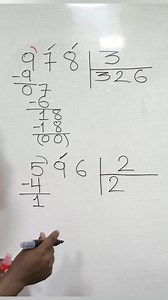 978 | 3
-9 326
07
-6
18
-18
(00)
596 | 2
-4 2
1